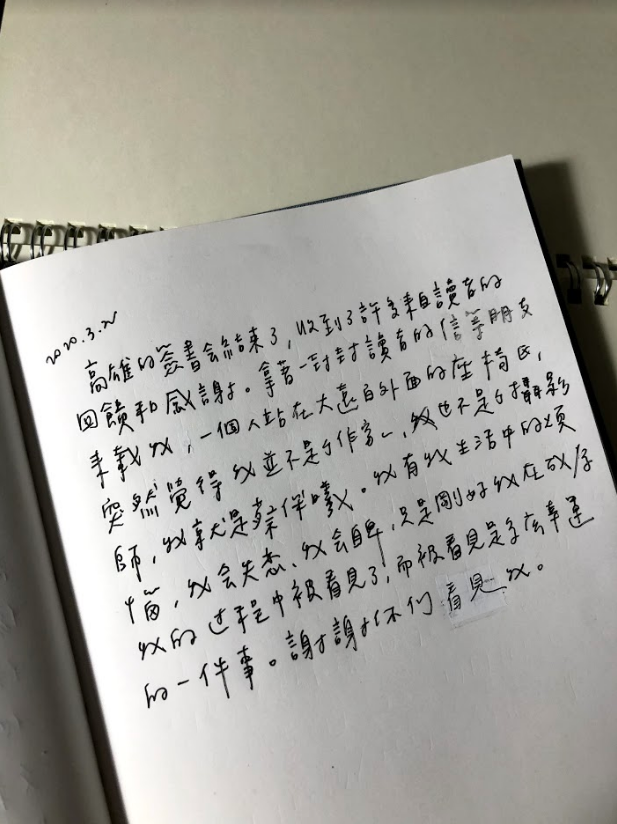 2020.3.22
高雄的簽書會結束了，收到了許多來自讀者的
回饋和感謝。拿著一封封讀者的信等朋友
來載我，一個人站在大遠百外面的座椅區，
突然覺得我並不是個作家，我也不是個攝影
師，我就是蔡傑曦。我有我生活中的煩
惱，我會失態、我會自卑，只是剛好我在成為
我的过程中被看見了，而被看見是多麼幸運
的一件事。謝謝你们看見我。